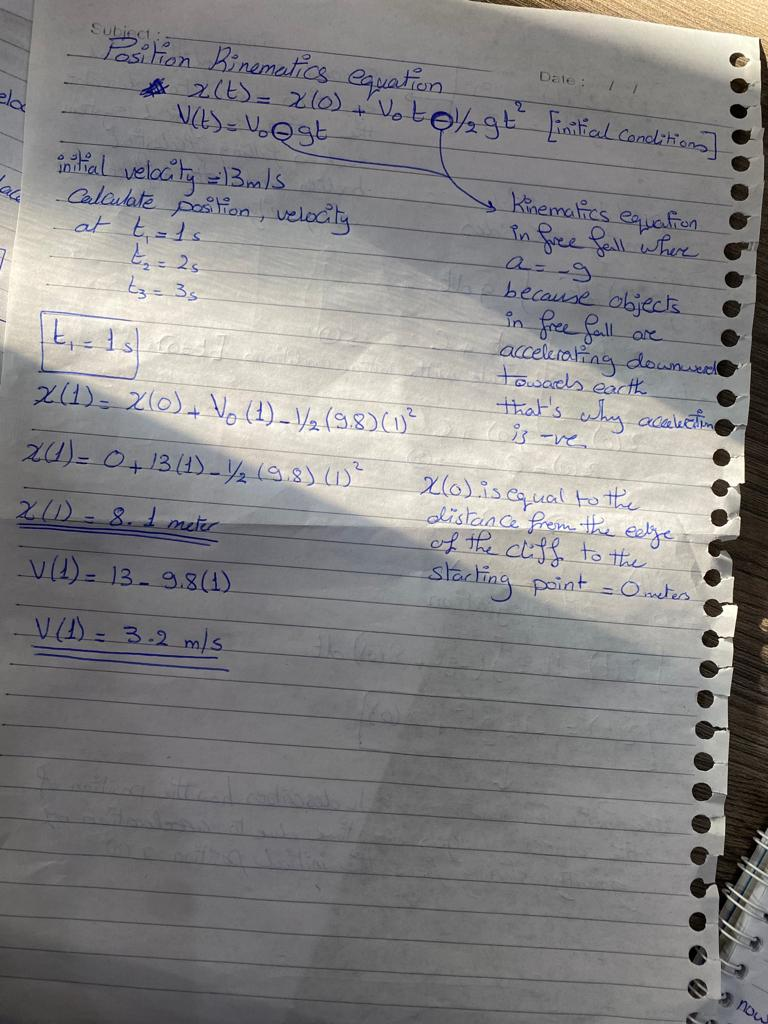 Subject:
Date: / /
Position Kinematics equation
* x(t) = x(0) + V₀ t ⊖ 1/2 gt² [initial conditions]
V(t) = V₀ ⊖ gt
initial velocity = 13 m/s
Calculate position, velocity
at t₁ = 1s
t₂ = 2s
t₃ = 3s
Kinematics equation
in free fall where
a = -g
because objects
in free fall are
accelerating downward
towards earth
that's why acceleration
is -ve
t₁ = 1s
x(1) = x(0) + V₀ (1) - 1/2 (9.8) (1)²
x(1) = 0 + 13(1) - 1/2 (9.8) (1)²
x(1) = 8.1 meter
V(1) = 13 - 9.8(1)
V(1) = 3.2 m/s
x(0) is equal to the
distance from the edge
of the cliff to the
starting point = 0 meters
now